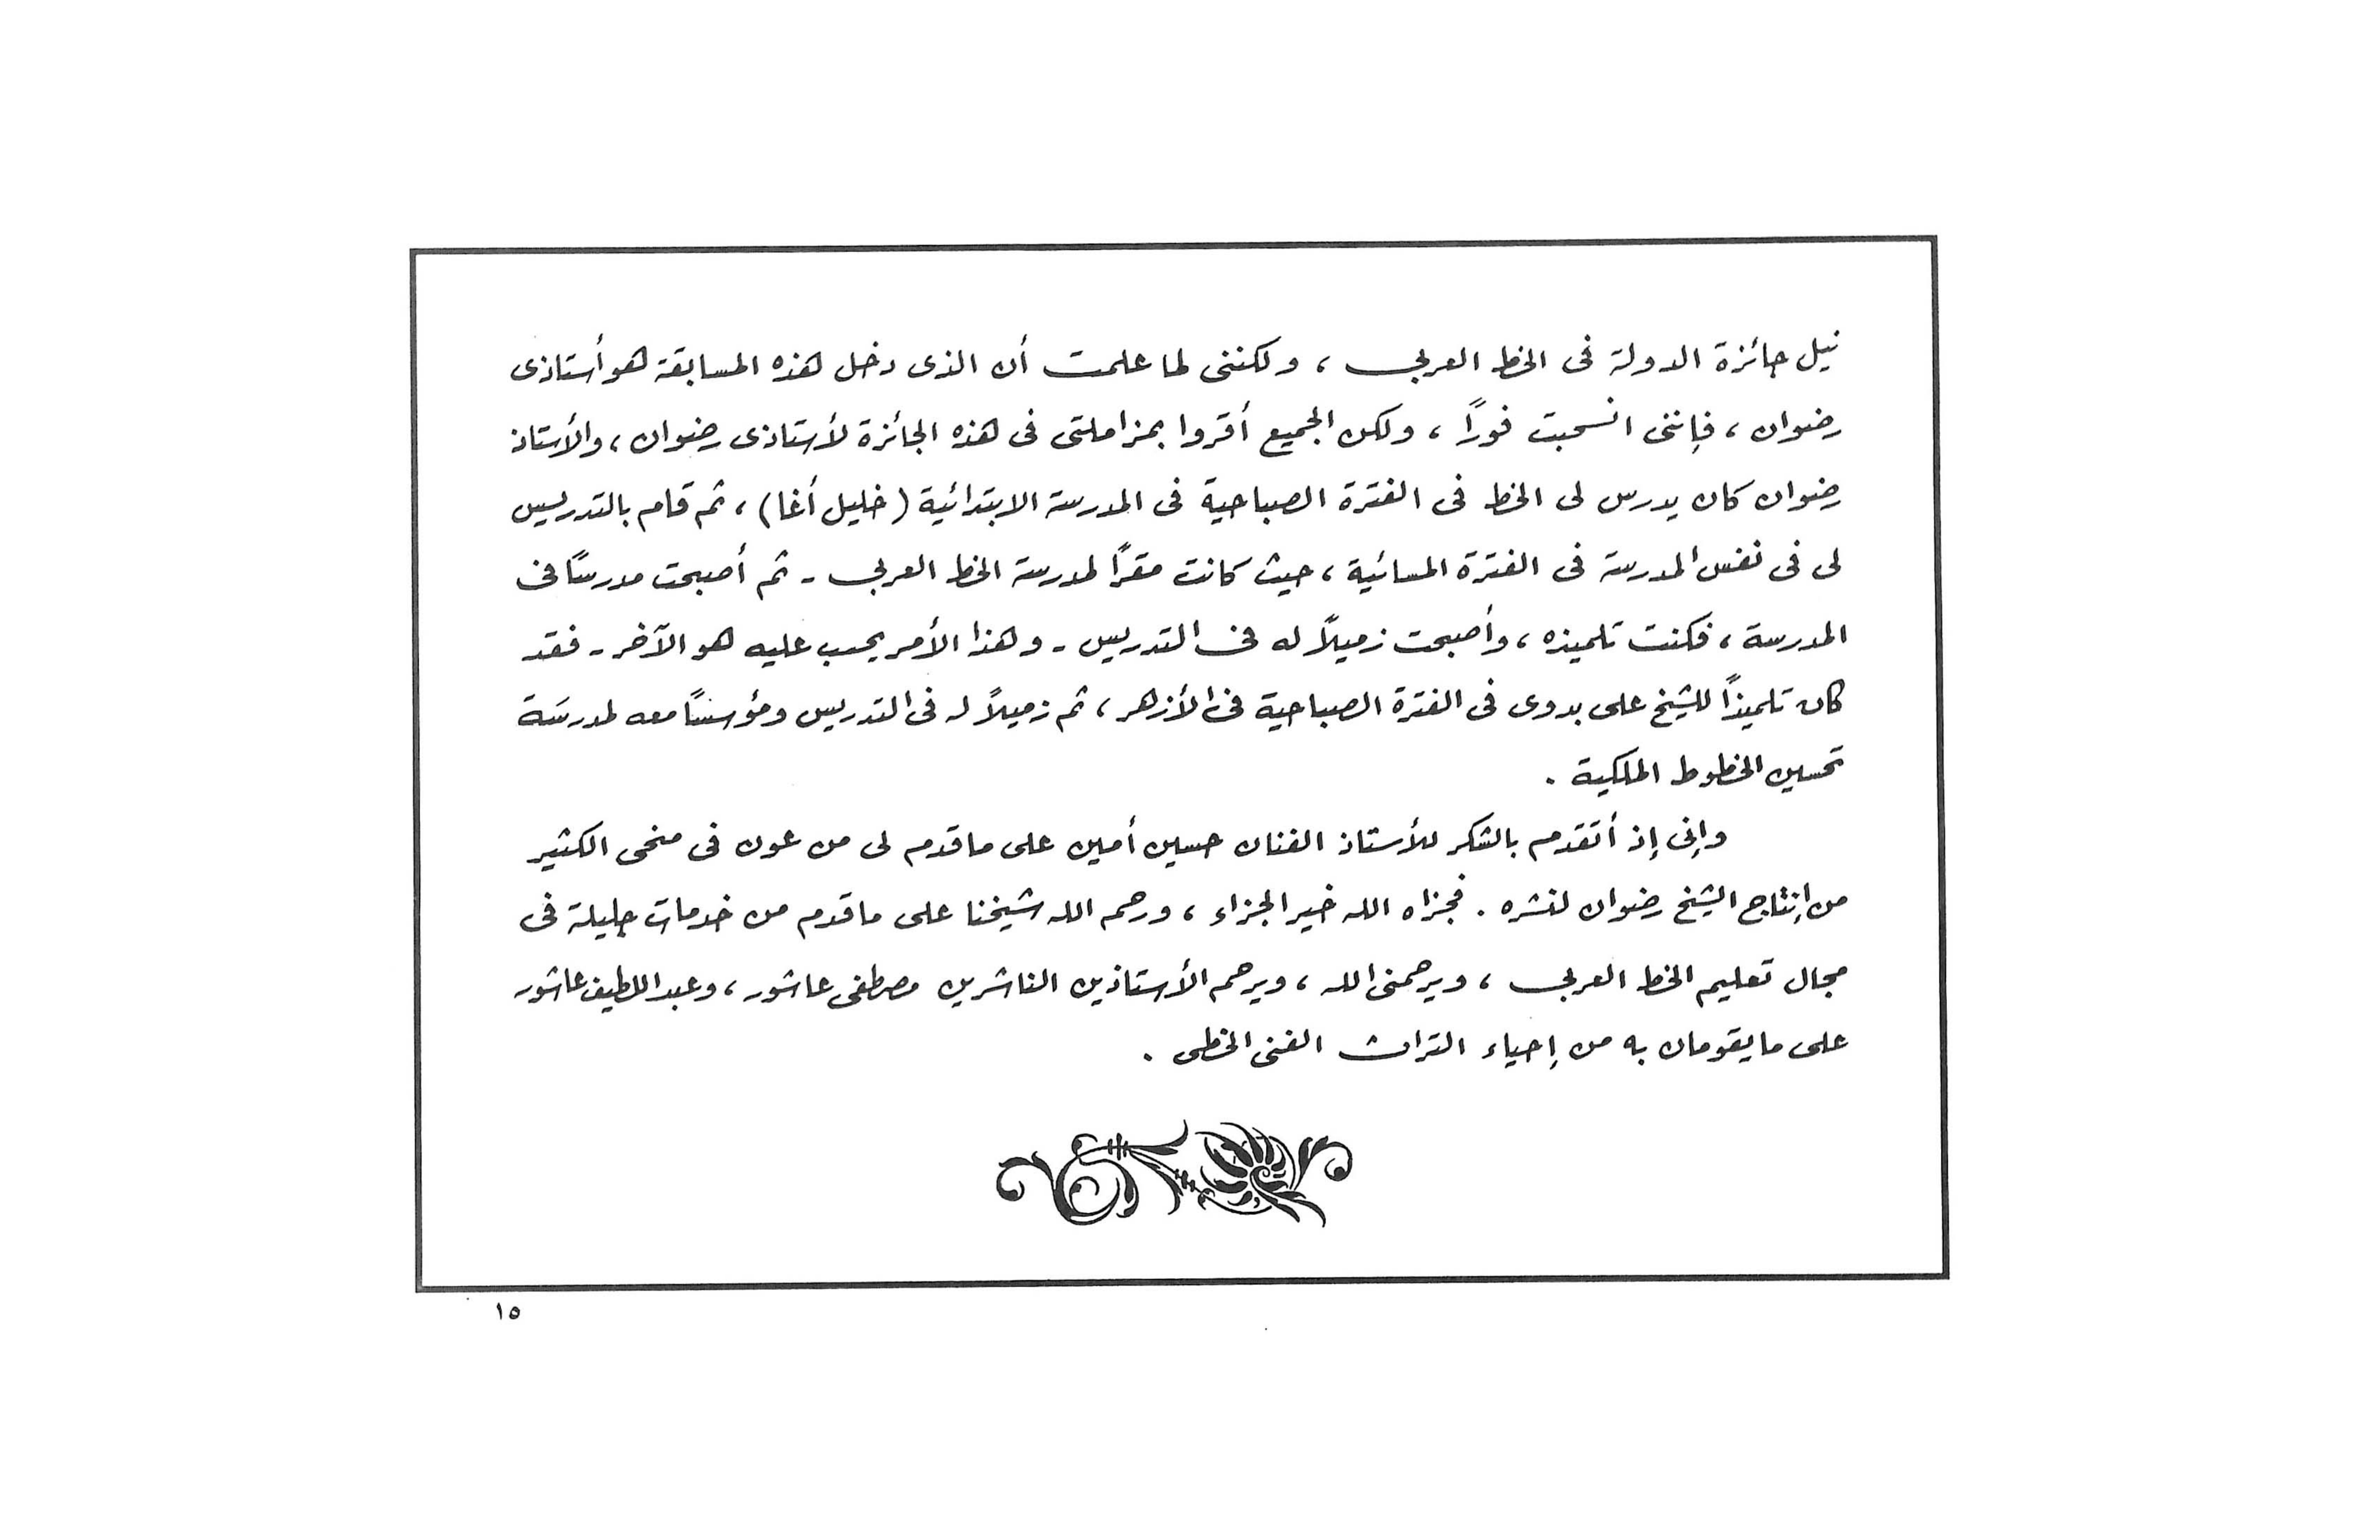 نيل جائزة الدولة فى الخط العربى ، ولكننى لما علمت أن الذى دخل هذه المسابقة هو أستاذى
رضوان ، فإننى انسحبت فورًا ، ولكن الجميع أقروا بمزاملتى فى هذه الجائزة لأستاذى رضوان ، والأستاذ
رضوان كان يدرس لى الخط فى الفترة الصباحية فى المدرسة الابتدائية (خليل أغا) ، ثم قام بالتدريس
لى فى نفس المدرسة فى الفترة المسائية ، حيث كانت مقرًا لمدرسة الخط العربى - ثم أصبحت مدرسًا فى
المدرسة ، فكنت تلميذه ، وأصبحت زميلاً له فى التدريس - وهذا الأمر يحسب عليه هو الآخر - فقد
كان تلميذًا للشيخ على بدوى فى الفترة الصباحية فى الأزهر ، ثم زميلاً له فى التدريس ومؤسسًا معه لمدرسَة
تحسين الخطوط الملكية .
وإنى إذ أتقدم بالشكر للأستاذ الفنان حسين أمين على ماقدم لى من عون فى منحى الكثير
من إنتاج الشيخ رضوان لنشره . فجزاه الله خير الجزاء ، ورحم الله شيخنا على ماقدم من خدمات جليلة فى
مجال تعليم الخط العربى ، ويرحمنى الله ، ويرحم الأستاذين الناشرين مصطفى عاشور ، وعبد اللطيف عاشور
على مايقومان به من إحياء التراث الفنى الخطى .
١٥